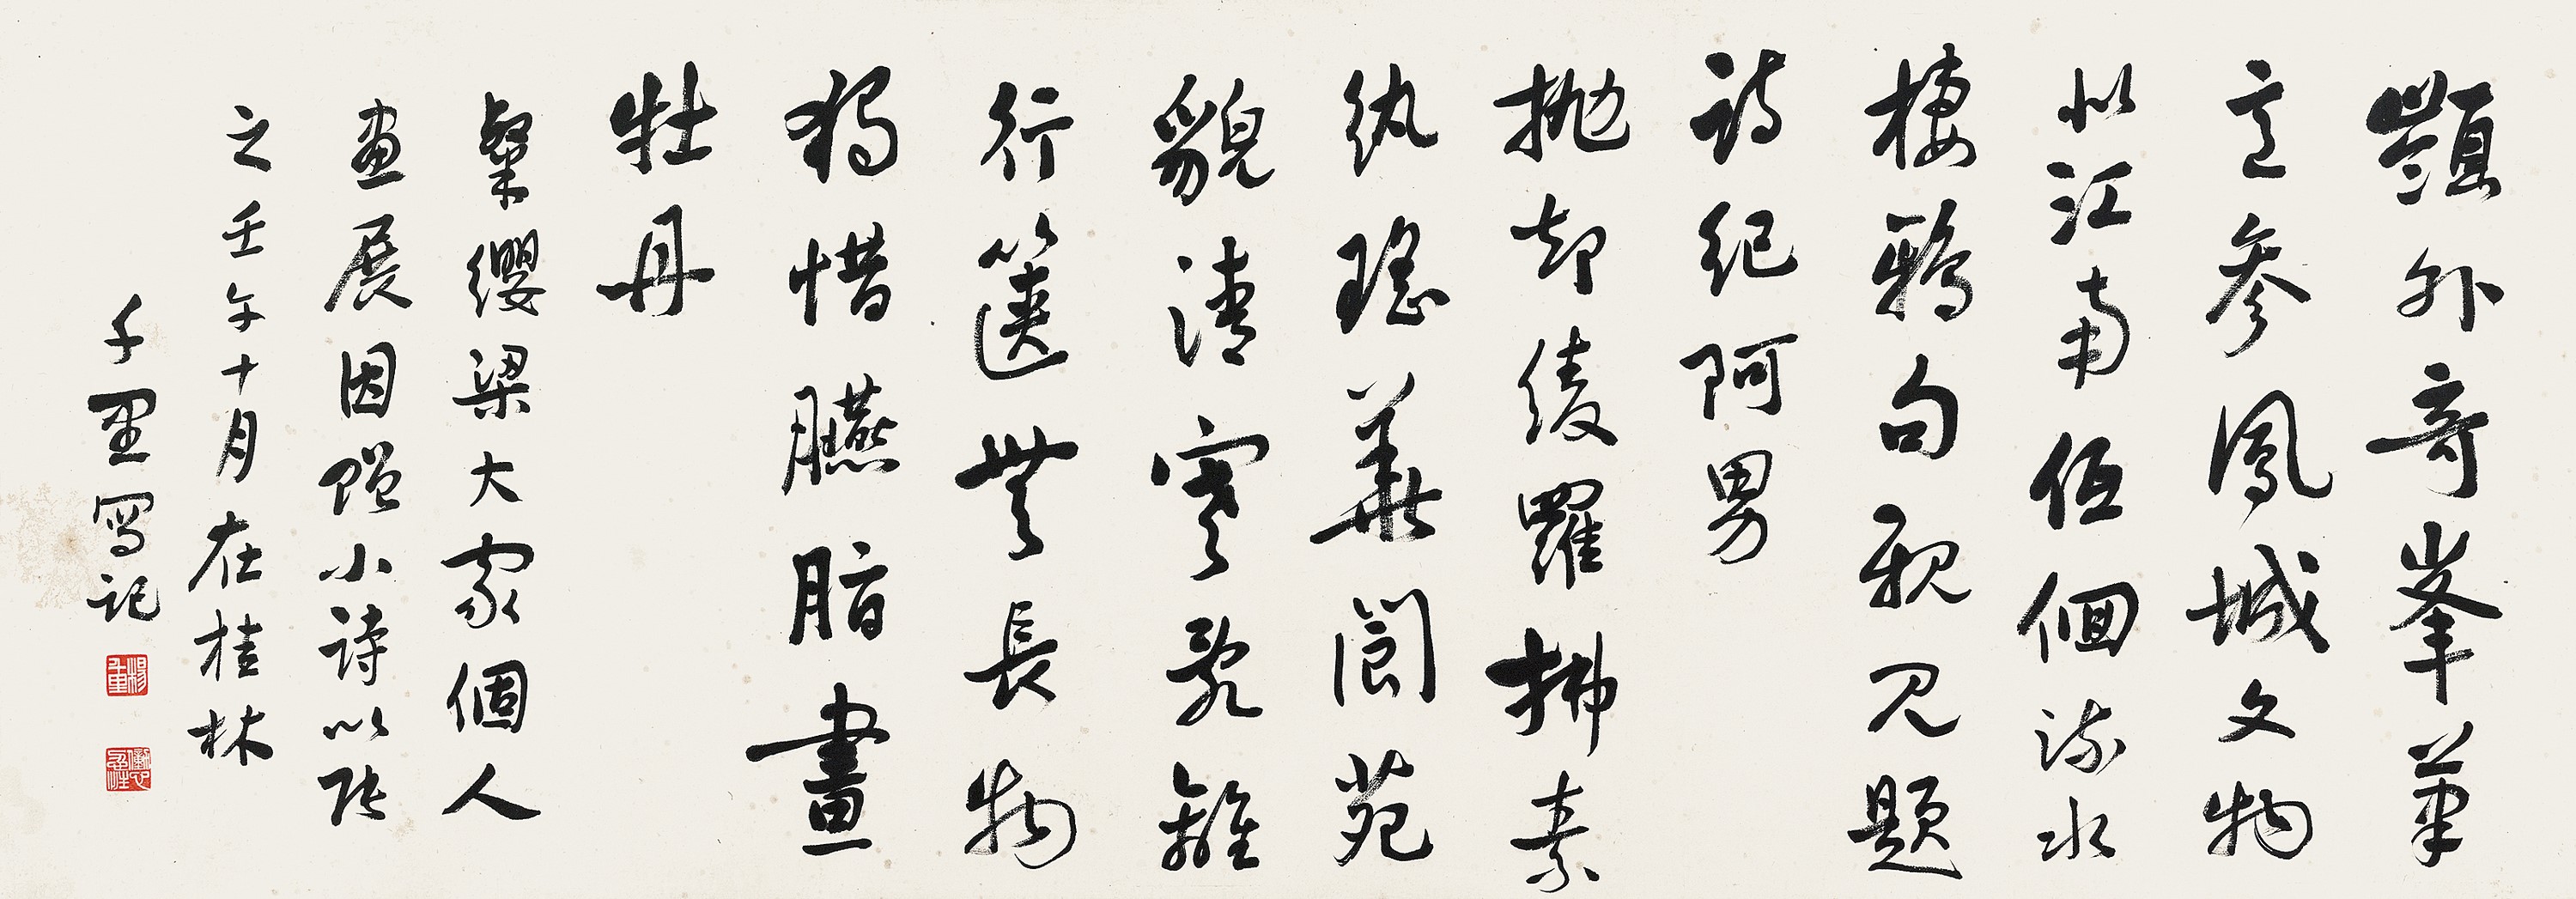 嶺外奇峯筆
意參鳳城文物
似江南低佪流水
棲鴉句親見題
詩紀阿男
拋却綾羅拂素
紈瑤華閬苑
貌清寒最難
行篋無長物
獨惜臙脂畫
牡丹
粲纓梁大家個人
畫展因贈小詩以張
之壬午十月在桂林
千里寫記